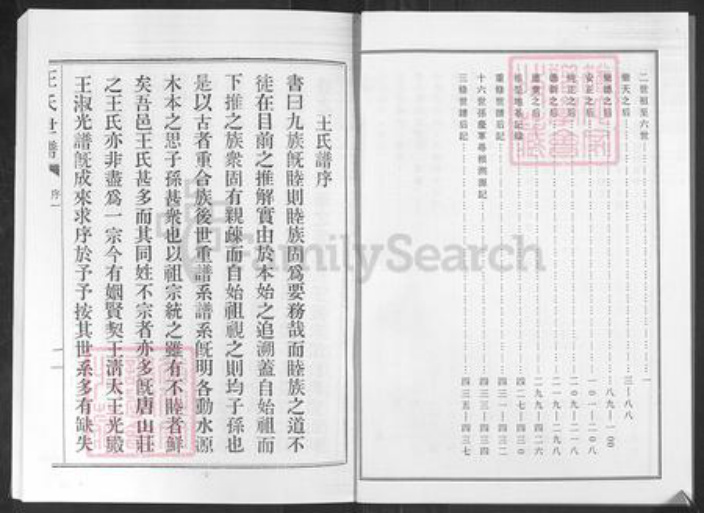 二世祖至六世 一
樂天之后 三—八八
樂德之后 八九—一00
安正之后 一0一—二0八
純正之后 二0九—二一八
二一九—二九八
之后 二九九—四二六
祖塋地名記錄 四二七—四三0
重修世譜后記 四三一—四三二
十六世孫慶軍尋根溯源記 四三三—四三四
三修世譜后記 四三五—四三七
王氏譜序
書曰九族旣睦則睦族固爲要務哉而睦族之道不
徒在目前之推解實由於本始之追溯蓋自始祖而
下推之族衆固有親疎而自始祖視之則均子孫也
是以古者重合族後世重譜系譜系旣明各動水源
木本之思子孫甚衆也以祖宗統之雖有不睦者鮮
矣吾邑王氏甚多而其同姓不宗者亦多旣唐山莊
之王氏亦非盡爲一宗今有姻賢契王清太王光殿
王淑光譜旣成來求序於予予按其世系多有缺失
王氏世譜
序
一
FamilySearch